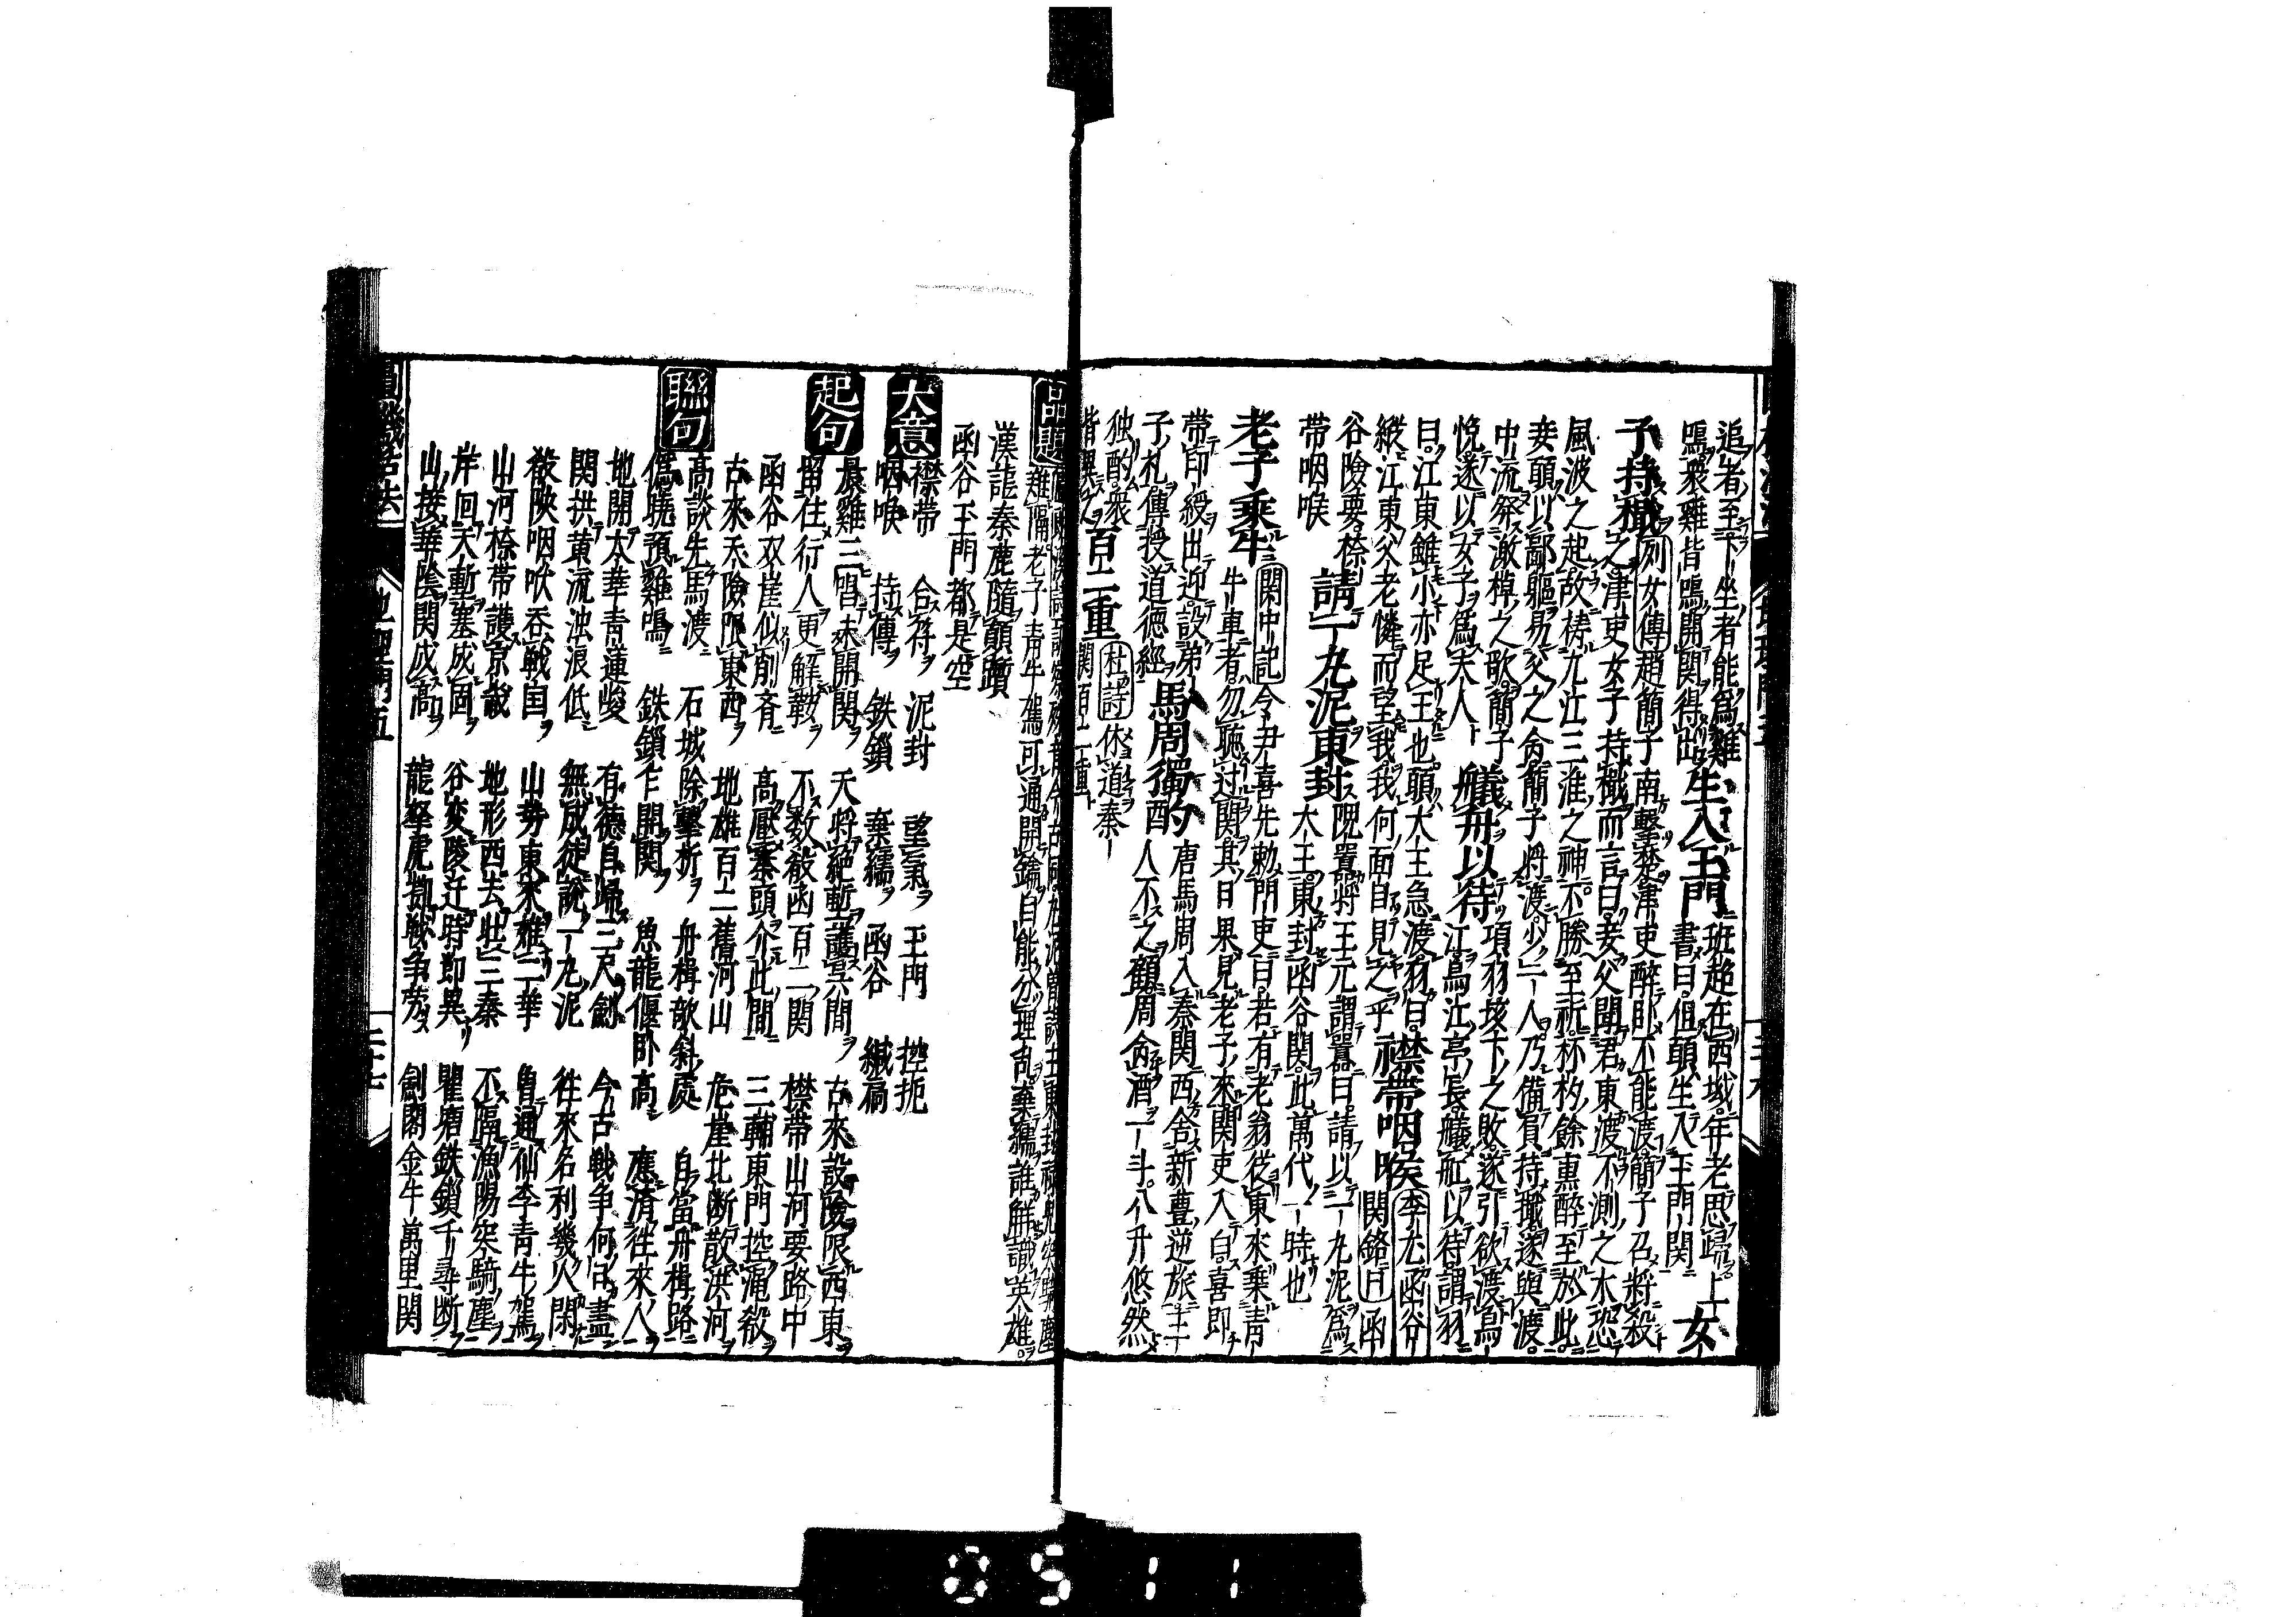 追者至下坐者能爲雞
鳴衆雞皆鳴開関得出
生入玉門
班超在西域年老思歸上
書曰但願生入玉門関
女
子持檝
列女傳
趙簡子南擊楚津吏醉卧不能渡簡子召將殺
之津吏女子持檝而言曰妾父聞君東渡不測之水恐
風波之起故祷九江三淮之神不勝至祈杯杓餘熏醉至於此
妾願以鄙軀易父之命簡子將渡少一人乃備員持檝遂與渡
中流發激棹之歌簡子
悦遂以女子爲夫人
艤舟以待
項羽垓下之敗遂引欲渡烏
江烏江亭長艤舡以待謂羽
曰江東雖小亦足王也願大王急渡羽曰
縱江東父老憐而望我我何面目見之乎
襟帶咽喉
李尤函谷
関銘曰函
谷險要襟
帶咽喉
請一丸泥東封
隗囂將王元謂囂曰請以一丸泥爲
大王東封函谷関此萬代一時也
老子乘牛
関中記
令尹喜先勅門吏曰若有老翁從東來乘青
牛車者勿聽过関其日果見老子來関吏入白喜即
帶印綬出迎設弟
子札傳授道德經
馬周獨酌
唐馬周入秦関西舍新豊逆旅主
人不之顧周命酒一斗八升悠然
独酌衆
皆異之
百二重
杜詩
休道秦
関百二重
品題
雞鳴
老子青牛駕可通開鑰自能分理乱棄繻誰解識英雄
漢謹秦鹿隨顛躓
函谷玉門都是空
大意
襟帶 合符 泥封 望氣 玉門 控扼
咽喉 持傳 鉄鎖 棄繻 函谷 緘扃
起句
晨雞三唱未開関 天將絕塹護冥間 古來設險限西東
留住行人更解鞍 不数殽函百二関 襟帶山河要路中
函谷双崖似削斉 高壓寨頭介此間 三輔東門控澠殽
古來天險限東西 地雄百二舊河山 危崖北断散洪河
聯句
高談先馬渡 石城除擊柝 舟楫欹斜処 自當舟楫路
偽曉預雞鳴 鉄鎖乍開関 魚龍偃卧高 應済往來人
地開太華青蓮峻 有德自歸三尺劔 今古戦争何日盡
関拱黄流浊浪低 無成徒説一丸泥 往來名利幾人閑
殽陜咽吭吞戦国 山势東來雄二華 曾通仙李青牛駕
山河襟帶護京畿 地形西去壮三秦 不隔漁陽突騎塵
岸回天塹塞成固 谷変陵迁時即異 瞿塘鉄鎖千尋断
山接華陰関成高 龍拏虎擲戦争労 劍閣金牛萬里関
圓機活法
地理門五
二十七
0511